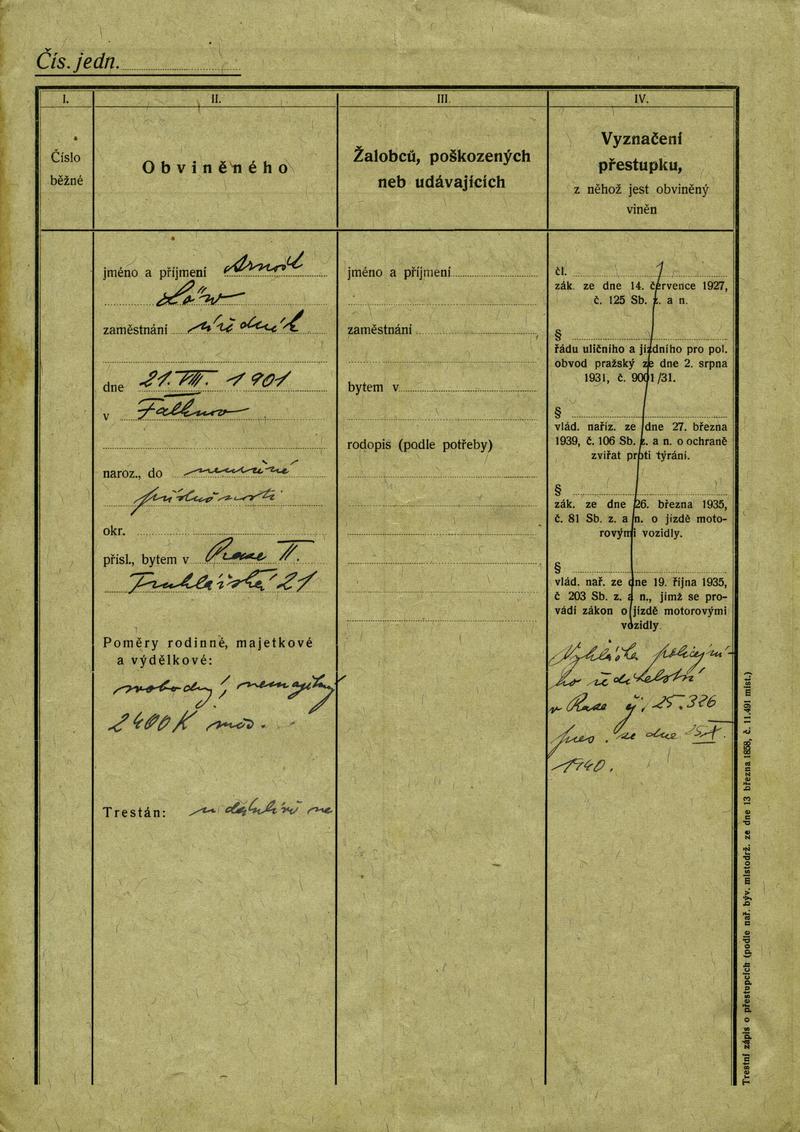 Čís. jedn.
I.
Číslo
běžné
II.
Obviněného
III.
Žalobců, poškozených
neb udávajících
IV.
Vyznačení
přestupku,
z něhož jest obviněný
viněn
jméno a příjmení Arnošt
Löw
zaměstnání úředník
dne 21. VIII. 1901
v Falknov
naroz., do
příslušnosti
okr.
přísl., bytem v Praze II.
Truhlářská 21
Poměry rodinné, majetkové
a výdělkové:
svobodný, nemajetný
2400 K měs.
Trestán:
jméno a příjmení
zaměstnání
bytem v
rodopis (podle potřeby)
čl.
zák. ze dne 14. července 1927,
č. 125 Sb. z. a n.
§
řádu uličního a jízdního pro pol.
obvod pražský ze dne 2. srpna
1931, č. 9001/31.
§
vlád. naříz. ze dne 27. března
1939, č. 106 Sb. z. a n. o ochraně
zvířat proti týrání.
§
zák. ze dne 26. března 1935,
č. 81 Sb. z. a n. o jízdě moto-
rovými vozidly.
§
vlád. nař. ze dne 19. října 1935,
č 203 Sb. z. a n., jímž se pro-
vádí zákon o jízdě motorovými
vozidly
Vyhláška policejní-
ho ředitelství
v Praze čj. 25.326
pres. ze dne
1940.
Trestní zápis o přestupcích (podle nař. býv. místodrž. ze dne 13 března 1858, č. 11.491 míst.)